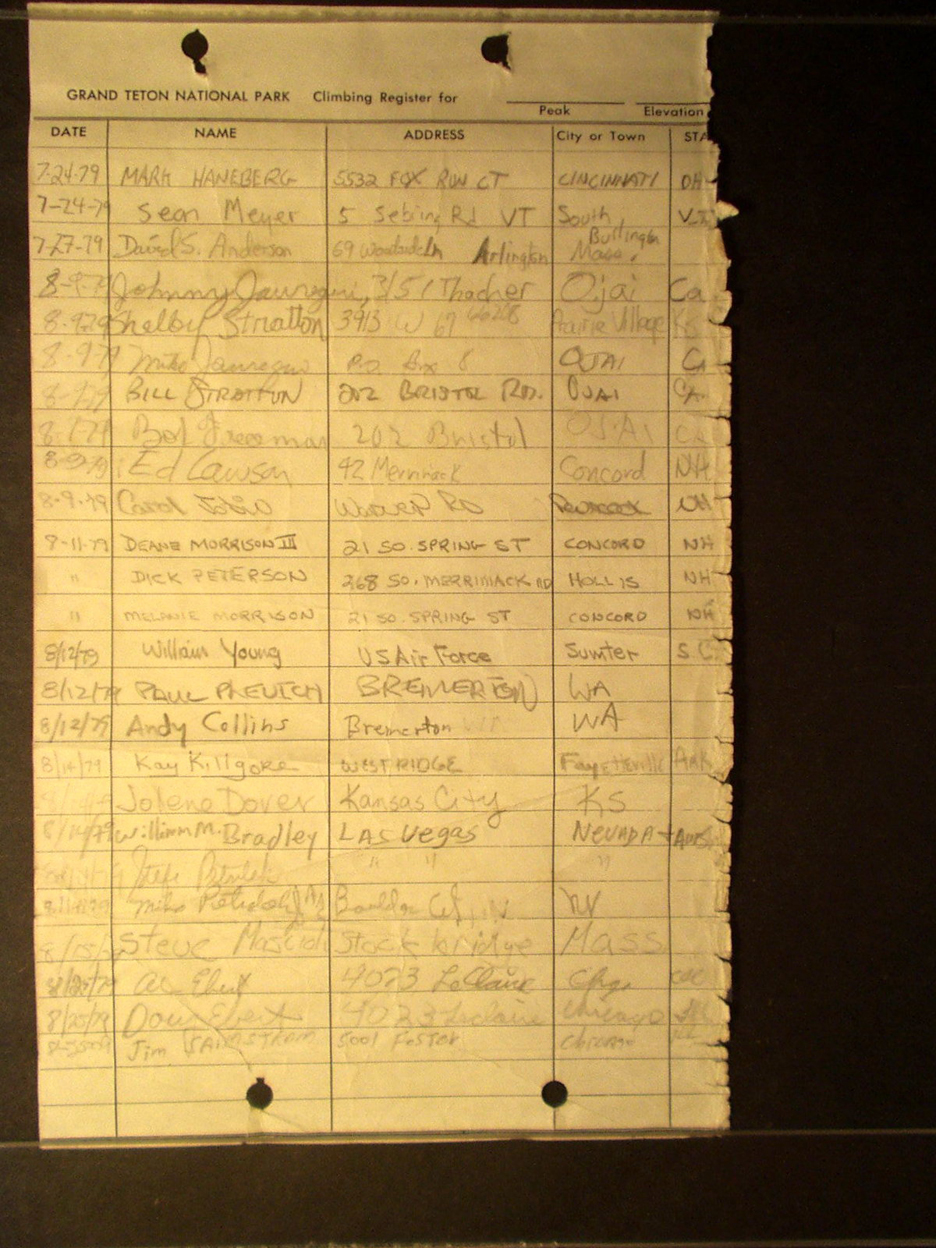 GRAND TETON NATIONAL PARK Climbing Register for
Peak Elevation
DATE NAME ADDRESS City or Town STA
7-24-79 MARK HANEBERG 5532 FOX RUN CT CINCINNATI OH
7-24-79 Sean Meyer 5 Sebring Rd VT South Burlington
7-27-79 David S. Anderson 69 Arlington Mass.
8-9-79 Johnny Jauregui, 3151 Thacher Ojai Ca
8-9-79 Shelby Stratton 3913 W 69 66208 Prairie Village KS
8-9-79 Mike Jauregui P.O. Box 8 OJAI CA
8-9-79 BILL STRATTON 202 BRISTOL RD. OJAI CA
Bob Freeman 202 Bristol OJAI CA
8-9-79 Ed Lawson 42 Merrimack Concord NH
8-9-79 Carol RD NH
8-11-79 DEANE MORRISON III 21 SO. SPRING ST CONCORD NH
" DICK PETERSON 268 SO. MERRIMACK RD HOLLIS NH
" MELANIE MORRISON 21 SO. SPRING ST CONCORD NH
8/12/79 William Young US Air Force Sumter S.C.
8/12/79 PAUL BREMERTON WA
8/12/79 Andy Collins Bremerton WA
8/14/79 Kay Killgore WESTRIDGE Fayetteville Ark
Jolene Dover Kansas City KS
8/14/79 William M. Bradley LAS Vegas NEVADA
" " "
Mike Boulder City NV
8/15/79 Steve Stockbridge Mass
Al Ebert 4023 LeClaire Chgo
8/20/79 Doug Ebert 4023 Leclaire Chicago Ill
Jim 5001 FOSTER Chicago Ill